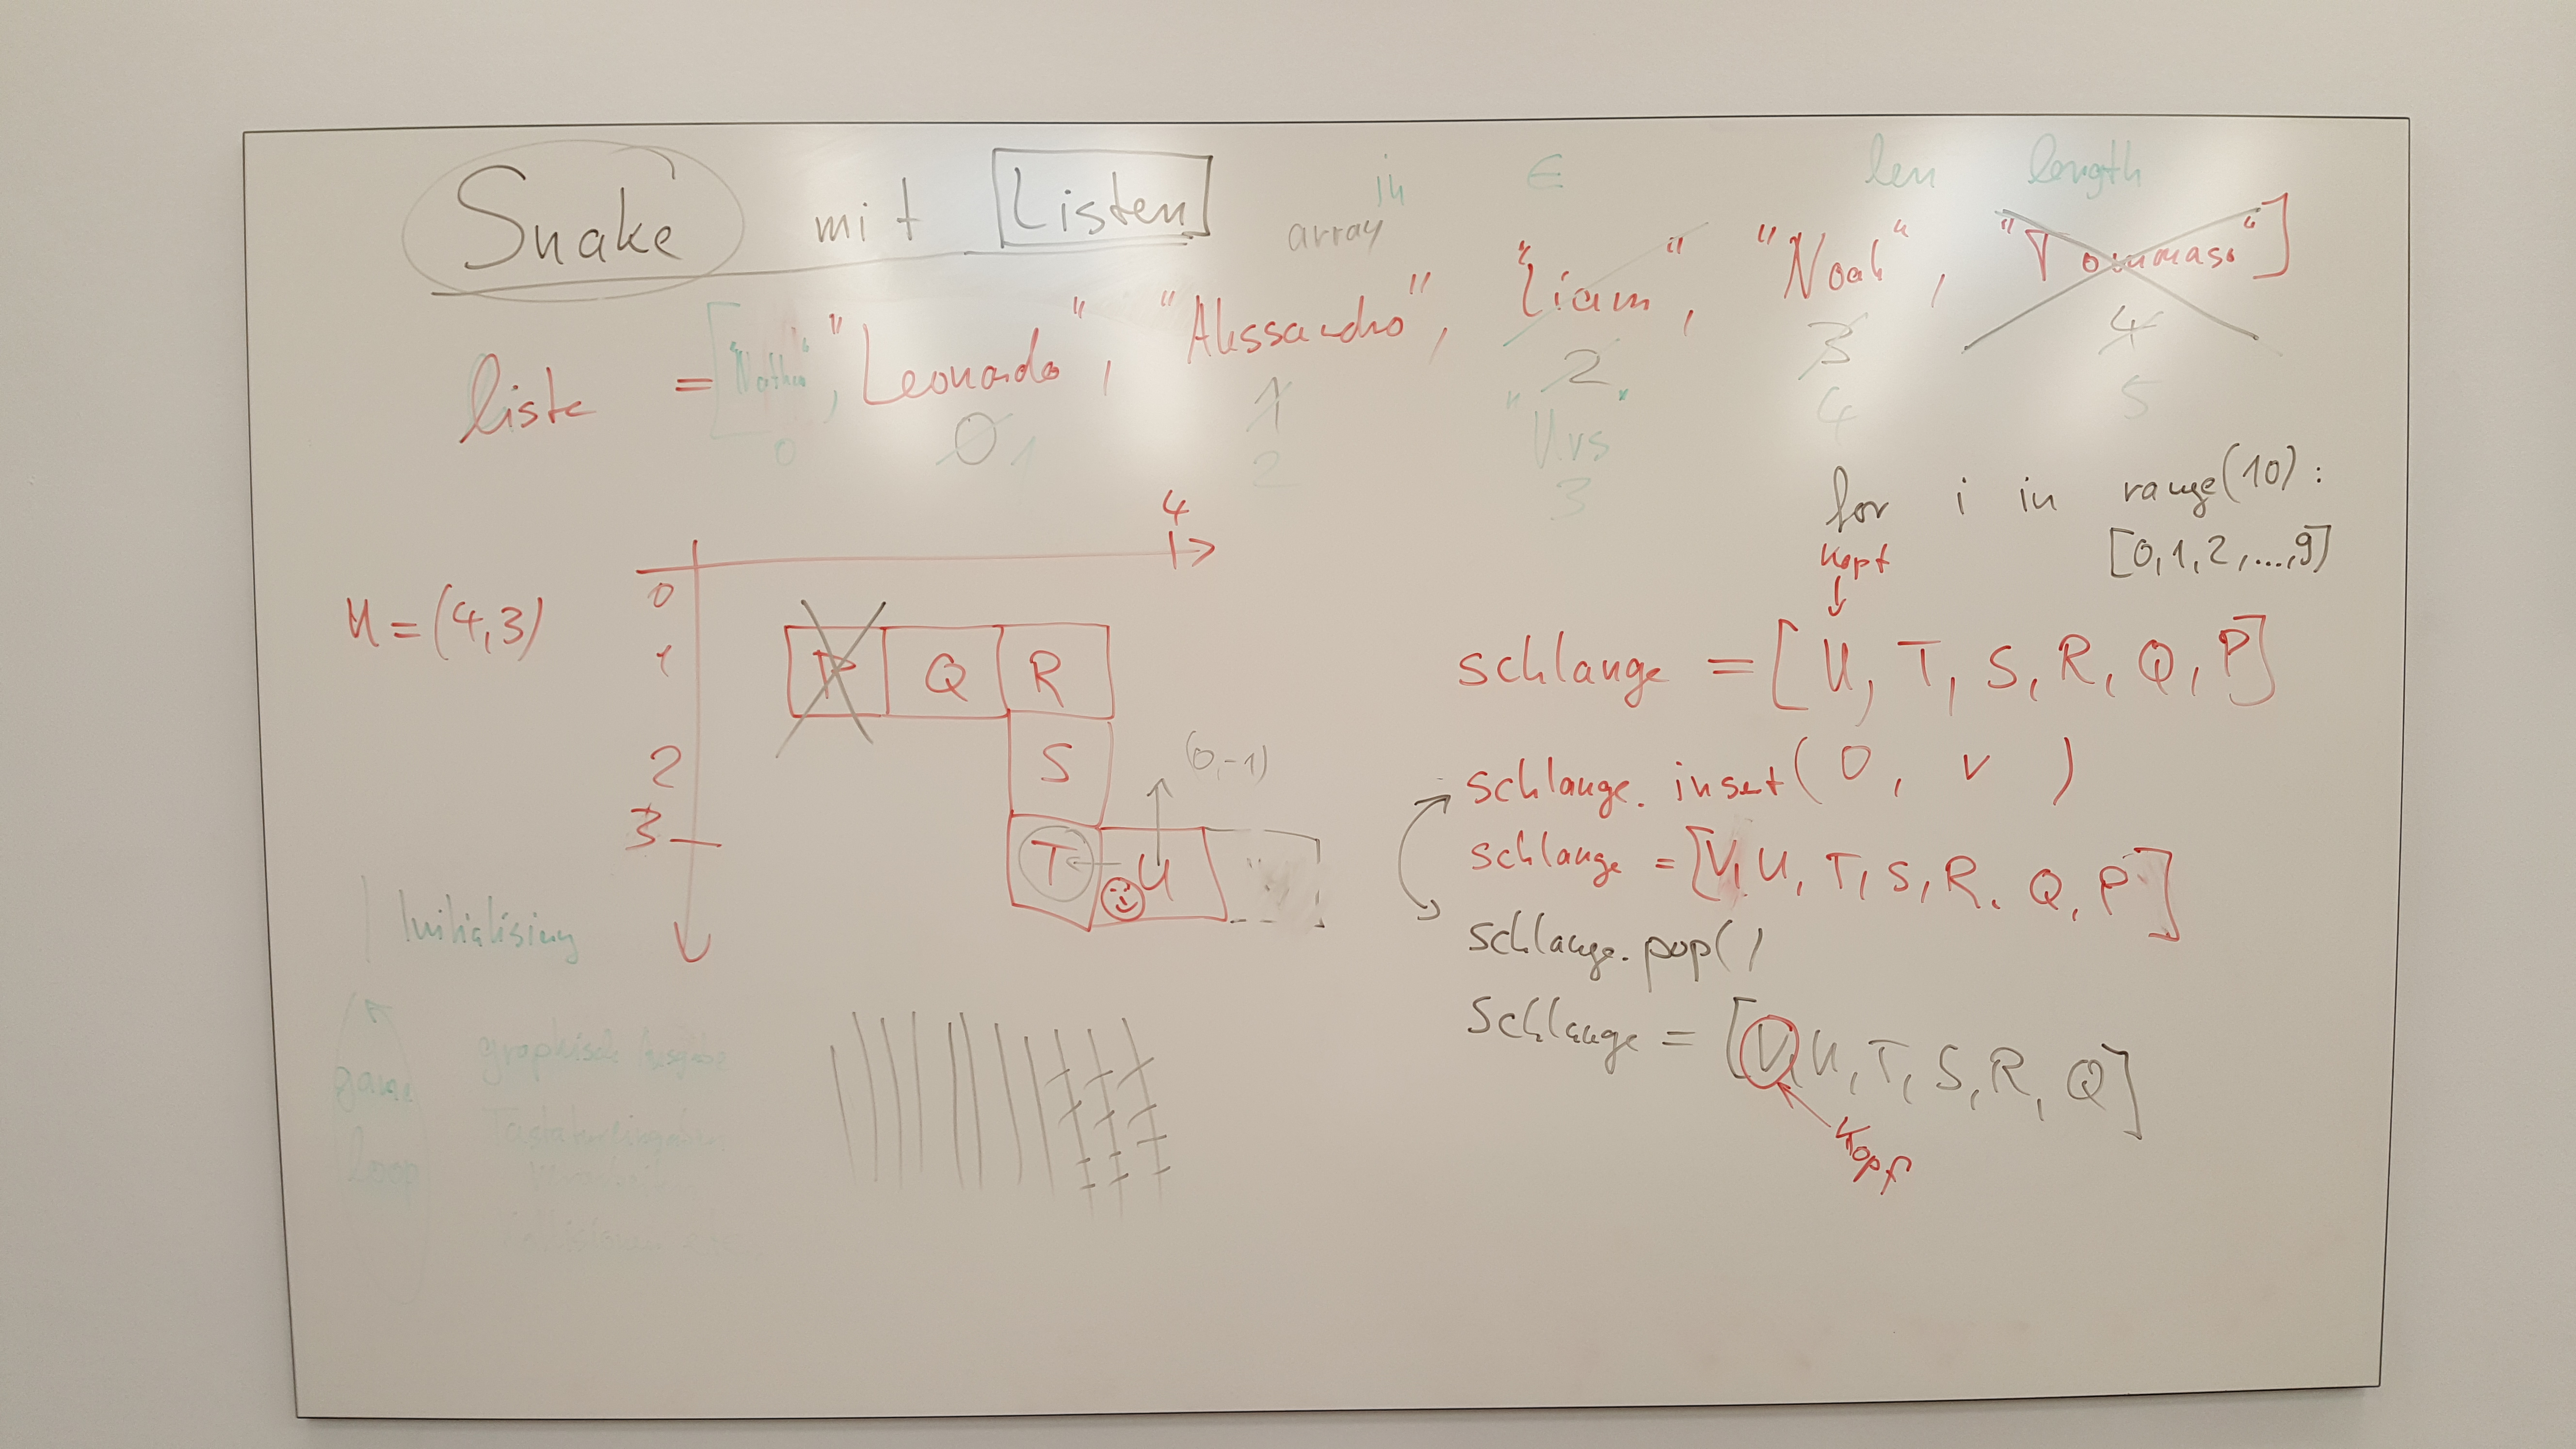 Snake mit Listen
in ∈ len length
array
liste = ["Nathan", "Leonardo", "Alessandro", "Liam", "Noah", "Tommaso"]
0 1 2 3 4
0 1 2 "Urs" 4 5
3
for i in range(10):
[0,1,2,...,9]
4
U = (4,3)
0
1
2
3
P Q R
S
T U
(0,-1)
Kopf
schlange = [U, T, S, R, Q, P]
schlange.insert(0, V)
schlange = [V, U, T, S, R, Q, P]
schlange.pop()
Schlange = [V, U, T, S, R, Q]
Kopf
Initialising
game
loop
graphische Ausgabe
Tastatureingaben
Kollisionen etc.